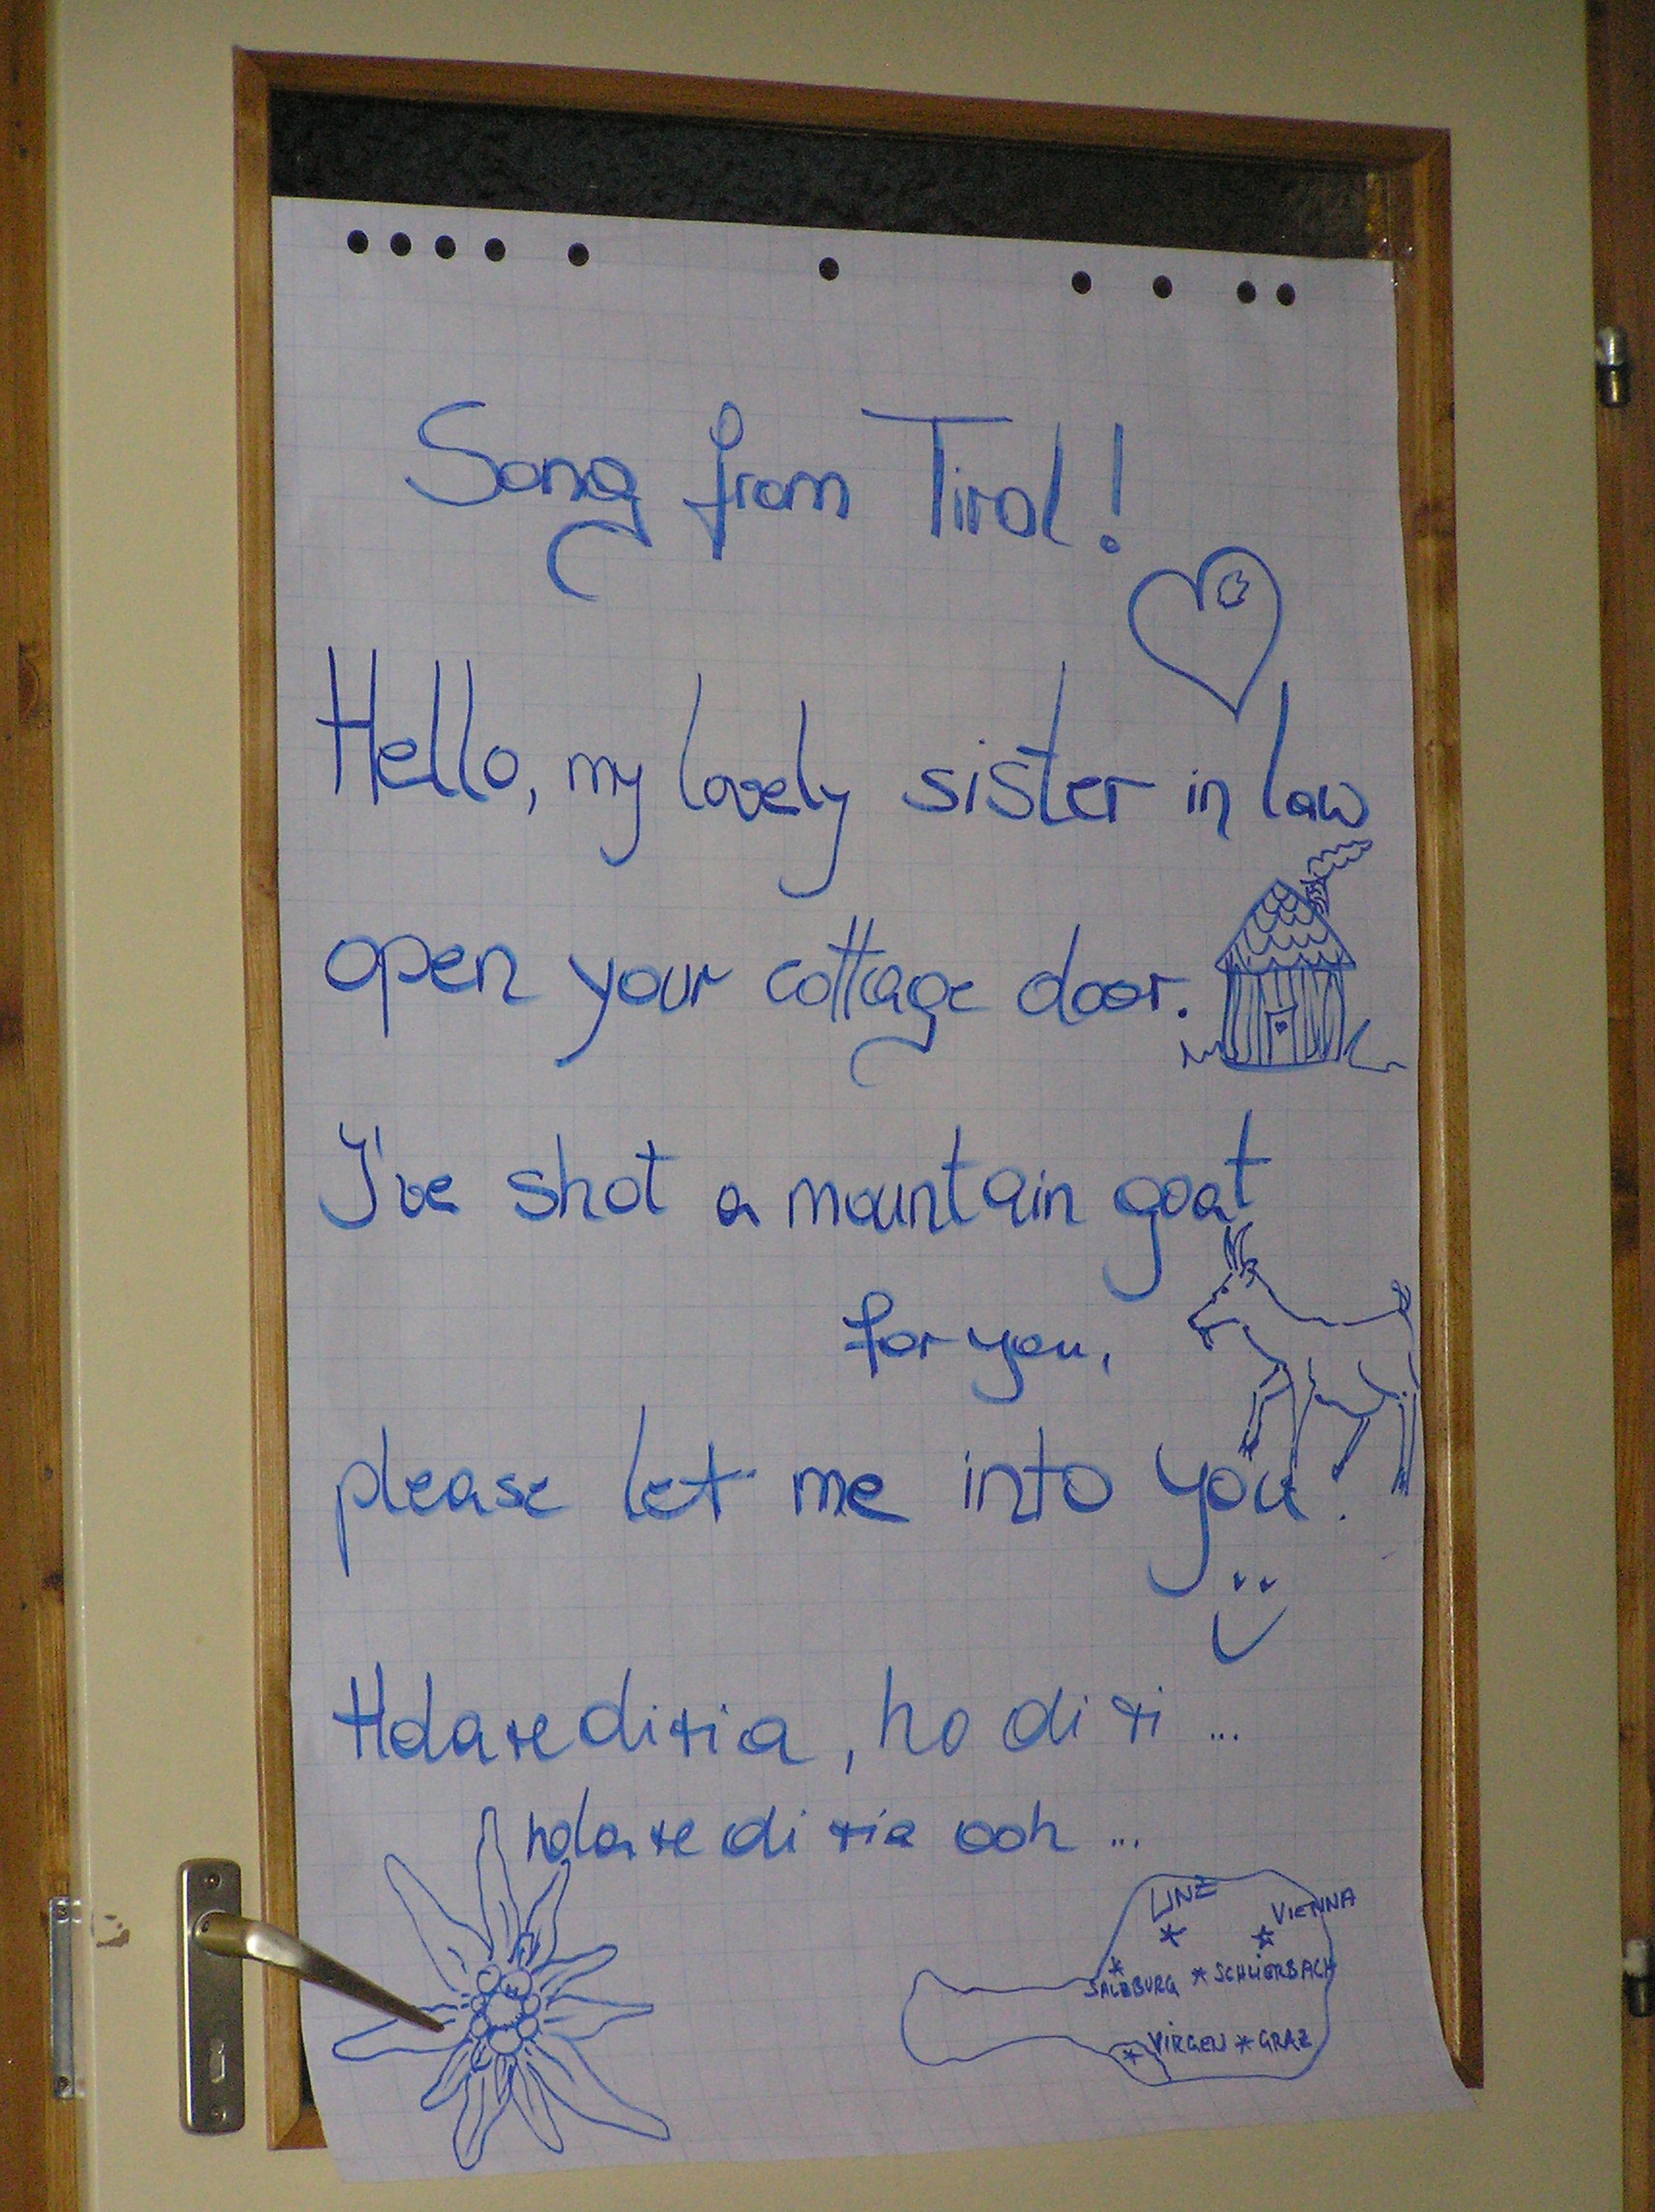 Song from Tirol!
Hello, my lovely sister in law
open your cottage door.
I've shot a mountain goat
for you,
please let me into you!
Hdarediria, ho di ri ...
hdare di ria ooh ...
LINZ
VIENNA
SALZBURG
SCHLIERBACH
VIRGEN
GRAZ